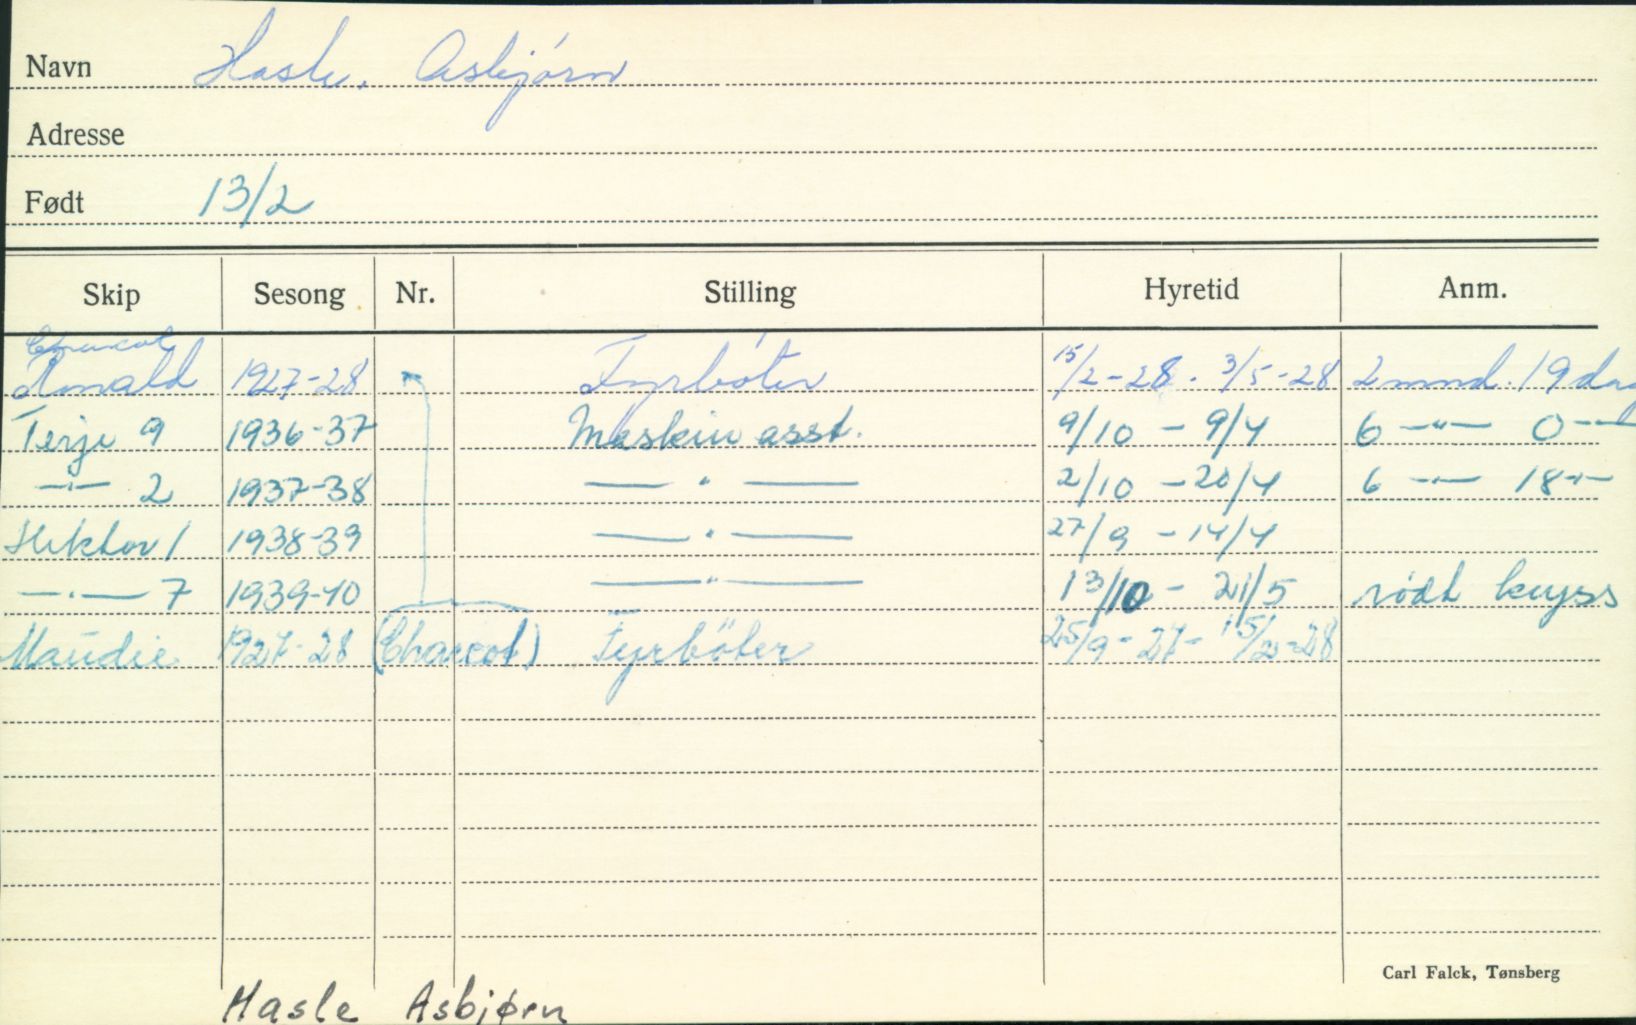 Navn Hasle, Asbjørn
Adresse
Født 13/2
Skip Sesong Nr. Stilling Hyretid Anm.
Charcot
Ronald 1927-28 Fyrbøter 15/2-28 - 3/5-28 2 mnd. 19 dag
Terje 9 1936-37 Maskin asst. 9/10 - 9/4 6 —"— 0 —"—
—"— 2 1937-38 —"— 2/10 - 20/4 6 —"— 18 —"—
Hektor 1 1938-39 —"— 27/9 - 14/4
—"— 7 1939-40 —"— 13/10 - 21/5 rødt kryss
Maudie 1927-28 (Charcot) Fyrbøter 25/9-27 - 15/2-28
Carl Falck, Tønsberg
Hasle Asbjørn